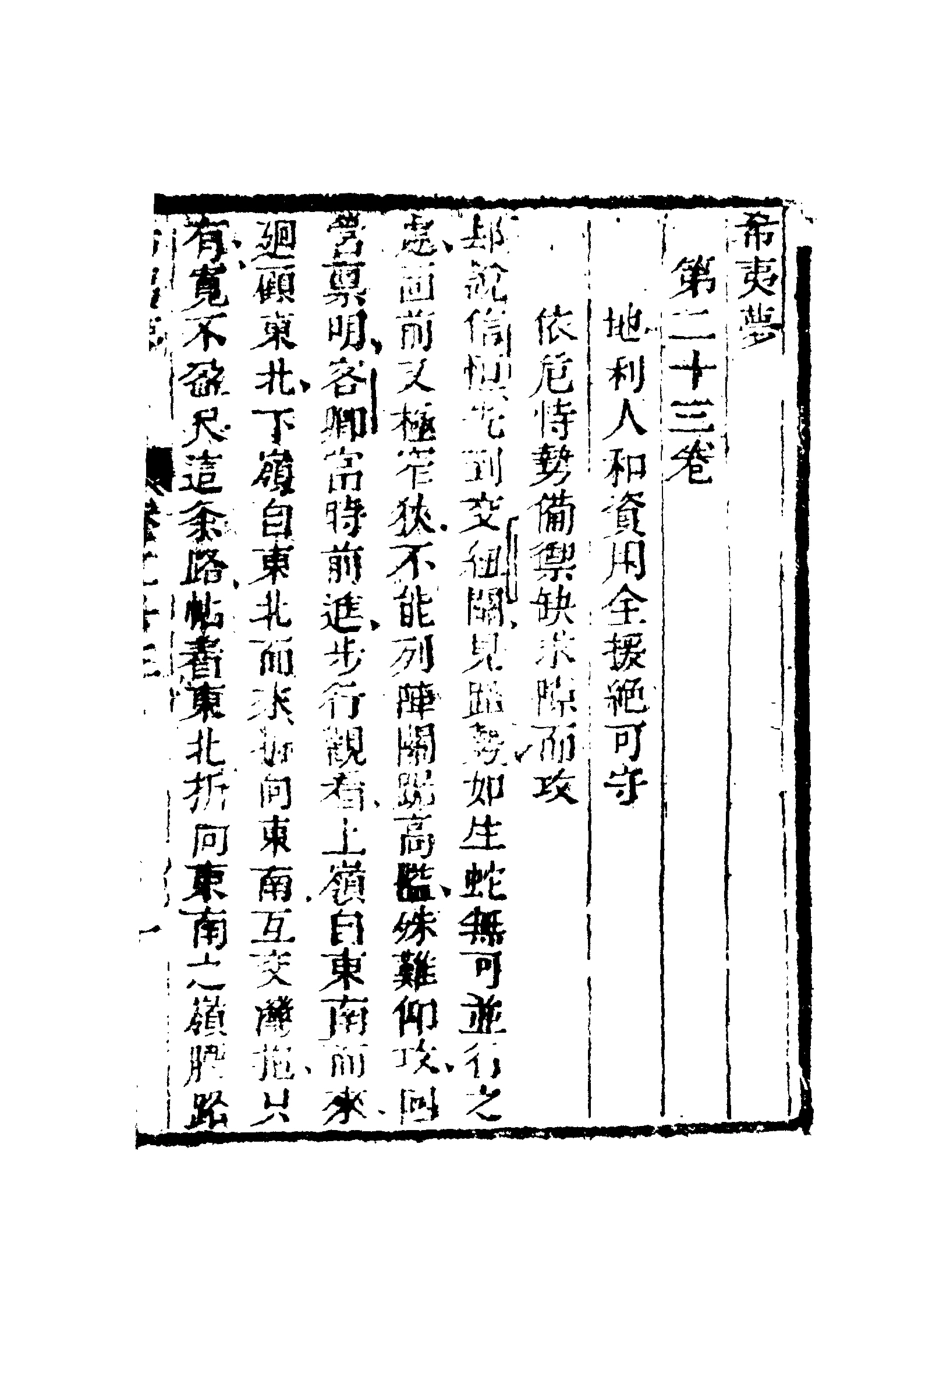 希夷夢
第二十三卷
地利人和資用全援絕可守
依危恃勢備禦缺求隙而攻
却說信恒先到交紐關見路勢如生蛇無可並行之
處面前又極窄狹不能列陣關跳高檻殊難仰攻回
營稟明客卿當時前進步行觀看上嶺自東南而來
迴顧東北下嶺自東北而來折向東南互交灣抱只
有寬不盈尺這条路帖着東北折向東南之嶺脾路
希夷夢 卷二十三 一